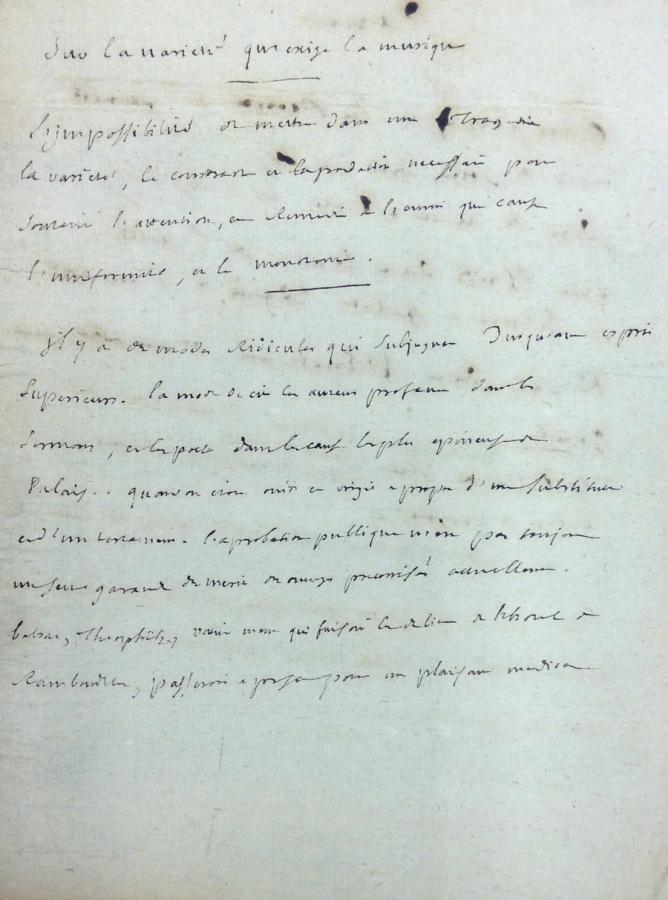 Sur la varieté qui exige la musique
L'impossibilité de mettre dans une Tragedie
la varieté, le contraste et la gradation necessaire pour
soutenir l'attention, et l'ennui que cause
l'uniformité, et la monotonie.
Il y a de modes Ridicules qui subjuguent Jusqu'aux esprits
superieurs. la mode de citer les auteurs profanes dans les
sermons, et les poetes dans les causes les plus epineuses du
Palais. ovide et virgile a propos d'une substitution
et d'un testament. l'aprobation publique n'est pas toujours
un seur garant du merite de ouvrage actuellement.
balzac, Theophile, voiture mesme qui faisoit les delices de l'hotel de
Rambouillet, passeroit a present pour un plaisant